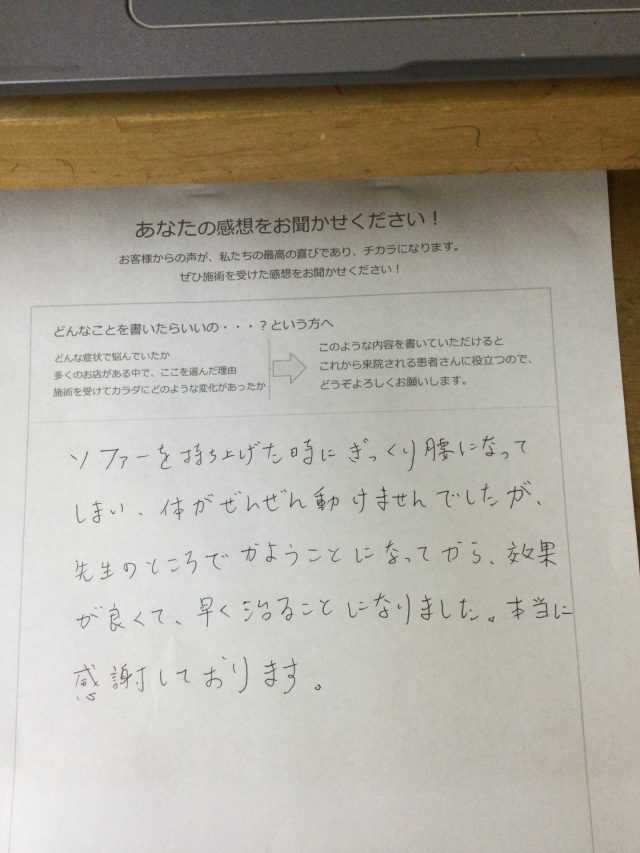 あなたの感想をお聞かせください！
お客様からの声が、私たちの最高の喜びであり、チカラになります。
ぜひ施術を受けた感想をお聞かせください！
どんなことを書いたらいいの・・・？という方へ
どんな症状で悩んでいたか
多くのお店がある中で、ここを選んだ理由
施術を受けてカラダにどのような変化があったか
このような内容を書いていただけると
これから来院される患者さんに役立つので、
どうぞよろしくお願いします。
ソファーを持ち上げた時にぎっくり腰になって
しまい、体がぜんぜん動けませんでしたが、
先生のところでかようことになってから、効果
が良くて、早く治ることになりました。本当に
感謝しております。